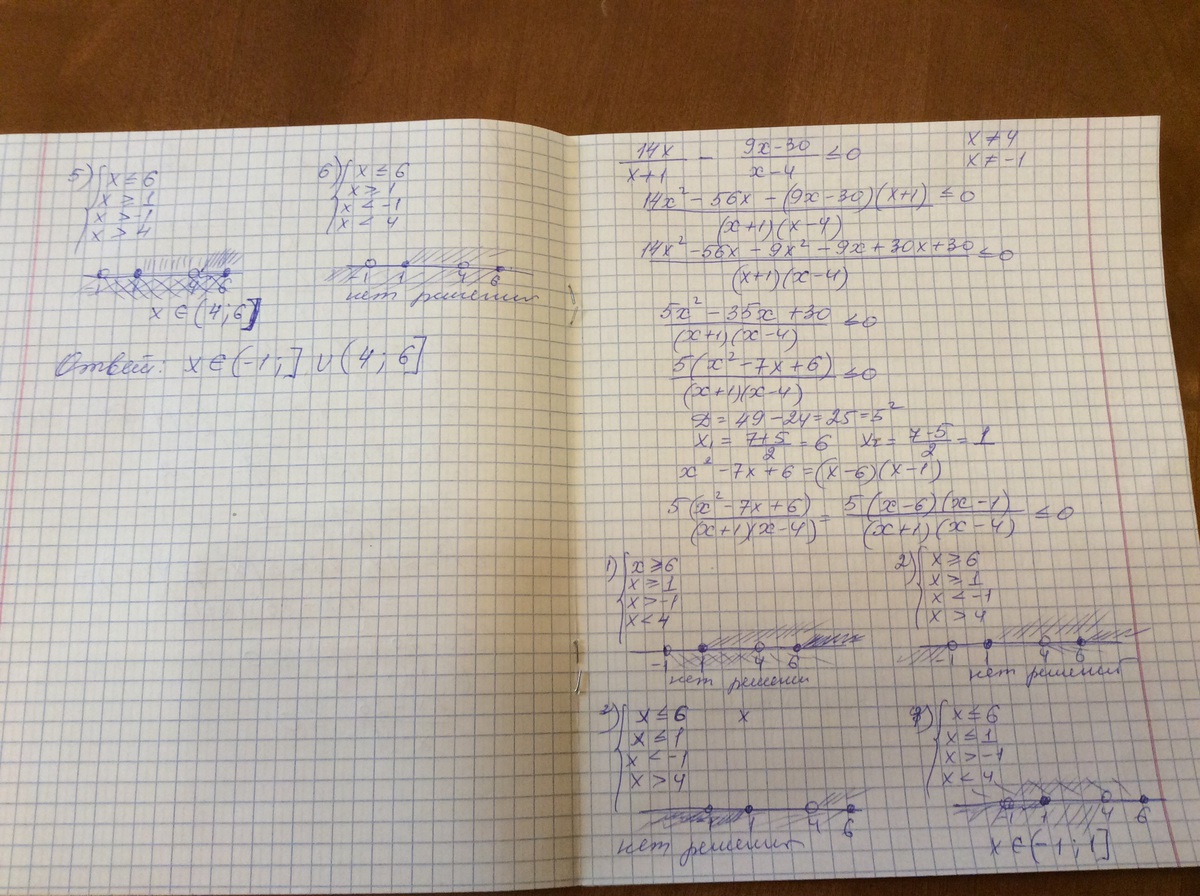 5) { x ≤ 6
x ≥ 1
x > -1
x > 4
-1 1 4 6
x ∈ (4; 6]
6) { x ≤ 6
x ≥ 1
x < -1
x < 4
-1 1 4 6
нет решений
Ответ: x ∈ (-1; ] ∪ (4; 6]
14x/(x+1) - (9x-30)/(x-4) ≤ 0
x ≠ 4
x ≠ -1
(14x² - 56x - (9x-30)(x+1))/((x+1)(x-4)) ≤ 0
(14x² - 56x - 9x² - 9x + 30x + 30)/((x+1)(x-4)) ≤ 0
(5x² - 35x + 30)/((x+1)(x-4)) ≤ 0
5(x² - 7x + 6)/((x+1)(x-4)) ≤ 0
D = 49 - 24 = 25 = 5²
x₁ = (7+5)/2 = 6 x₂ = (7-5)/2 = 1
x² - 7x + 6 = (x-6)(x-1)
5(x² - 7x + 6)/((x+1)(x-4)) = 5(x-6)(x-1)/((x+1)(x-4)) ≤ 0
1) { x ≥ 6
x ≥ 1
x > -1
x < 4
-1 1 4 6
нет решений
2) { x ≥ 6
x ≥ 1
x < -1
x > 4
-1 1 4 6
нет решений
3) { x ≤ 6 x
x ≤ 1
x < -1
x > 4
-1 1 4 6
нет решений
4) { x ≤ 6
x ≤ 1
x > -1
x < 4
-1 1 4 6
x ∈ (-1; 1]